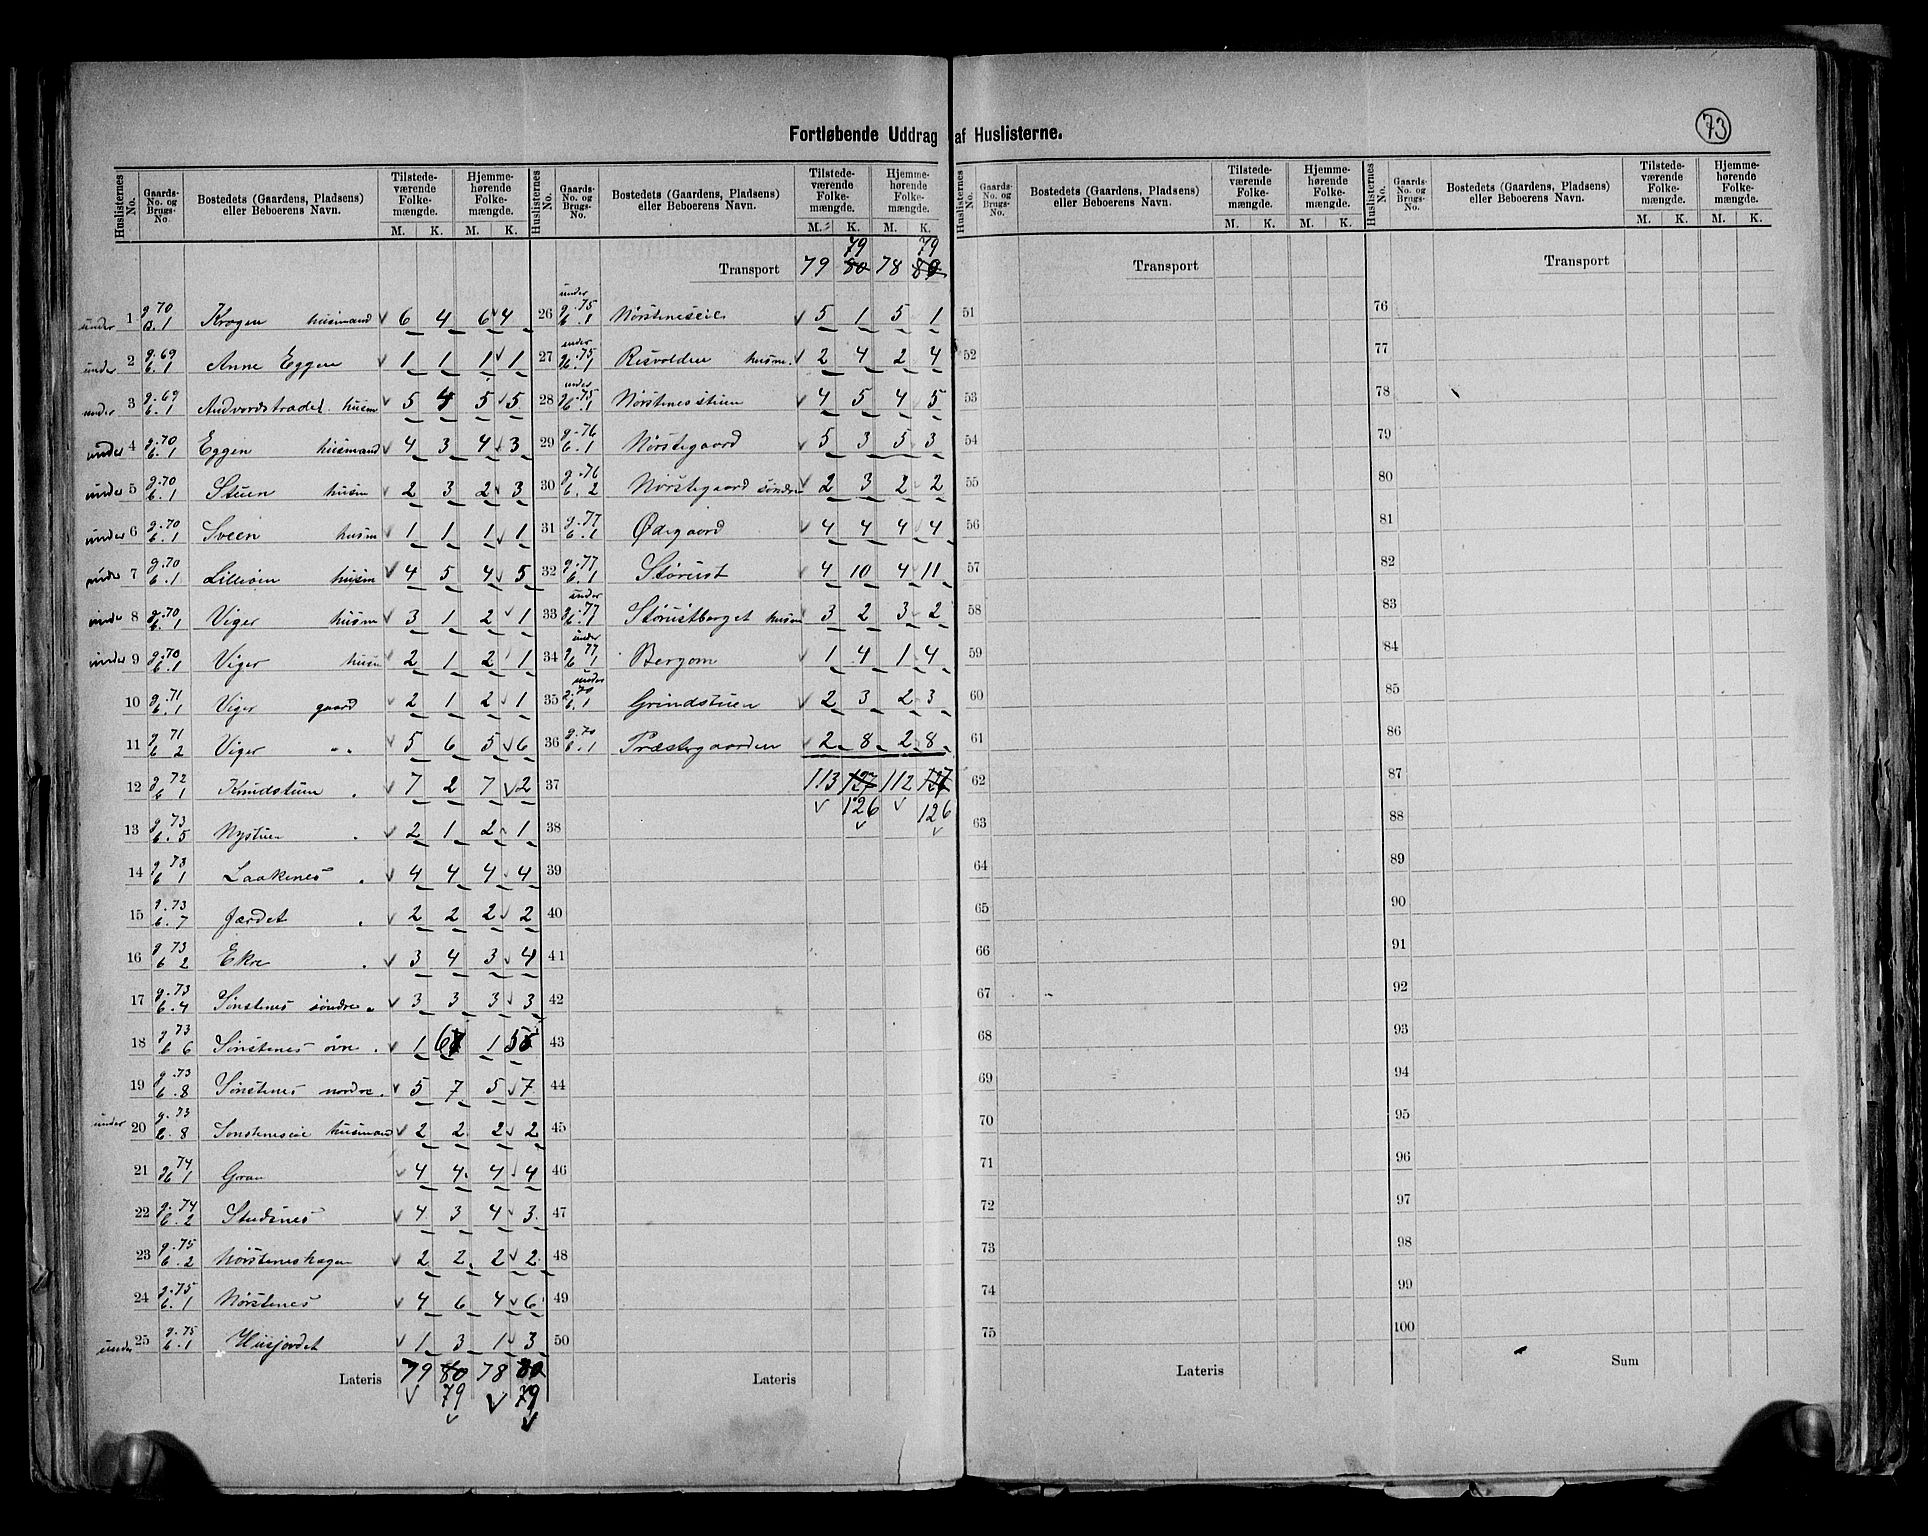 Fortløbende Uddrag af Huslisterne.
73
Huslisternes No. | Gaards-No. og Brugs-No. | Bostedets (Gaardens, Pladsens) eller Beboerens Navn. | Tilstedeværende Folkemængde. M. K. | Hjemmehørende Folkemængde. M. K.
under 1 g. 70 B. 1 Krogen husmand 6 4 6 4
under 2 g. 69 b. 1 Anne Eggen 1 1 1 1
under 3 g. 69 b. 1 husm 5 4 5 5
under 4 g. 70 b. 1 Eggen husmand 4 3 4 3
under 5 g. 70 b. 1 Stuen husm 2 3 2 3
under 6 g. 70 b. 1 Sveen husm 1 1 1 1
under 7 g. 70 b. 1 Lilleøien husm 4 5 4 5
under 8 g. 70 b. 1 Viger husm 3 1 2 1
under 9 g. 70 b. 1 Viger husm 2 1 2 1
10 g. 71 b. 1 Viger gaard 2 1 2 1
11 g 71 b 2 Viger " 5 6 5 6
12 g 72 b 1 Knudstuen 7 2 7 2
13 g. 73 b. 5 Nystuen 2 1 2 1
14 g. 73 b 1 Laakenes 4 4 4 4
15 g. 73 b. 7 Jærdet 2 2 2 2
16 g 73 b 2 Ekre 3 4 3 4
17 g. 73 b. 4 Sønstenes søndre 3 3 3 3
18 g 73 b 6 Sønstenes øvre 1 6 1 5
19 g. 73 b. 8 Sønstenes nordre 5 7 5 7
under 20 g. 73 b. 8 Sønsteneseie husmand 2 2 2 2
21 g. 74 b 1 Gran 4 4 4 4
22 g. 74 b. 2 Studsnes 4 3 4 3
23 g. 75 b. 2 Nørsteneshagen 2 2 2 2
24 g. 75 b. 1 Nørstenes 4 6 4 6
under 25 g. 75 b. 1 Husjordet 1 3 1 3
Lateris 79 80 78 80
79 79
Huslisternes No. | Gaards-No. og Brugs-No. | Bostedets (Gaardens, Pladsens) eller Beboerens Navn. | Tilstedeværende Folkemængde. M. K. | Hjemmehørende Folkemængde. M. K.
79 79
Transport 79 80 78 80
under 26 g. 75 b. 1 Nørsteneseie 5 1 5 1
under 27 g. 75 b. 1 Risvolden husm. 2 4 2 4
under 28 g. 75 b. 1 Nørstenesstuen 4 5 4 5
29 g. 76 b. 1 Nørstegaard 5 3 5 3
30 g. 76 b. 2 Nørstegaard søndre 2 3 2 2
31 g. 77 b. 1 Ødegaard 4 4 4 4
32 g. 77 b. 1 Størust 4 10 4 11
under 33 g. 77 b. 1 Størustberget husm 3 2 3 2
under 34 g. 77 b 1 Bergom 1 4 1 4
under 35 g. 70 b. 1 Grindstuen 2 3 2 3
36 g. 70 b. 1 Præstegaarden 2 8 2 8
37 113 127 112 127
126 126
38
39
40
41
42
43
44
45
46
47
48
49
50
Lateris
Huslisternes No. | Gaards-No. og Brugs-No. | Bostedets (Gaardens, Pladsens) eller Beboerens Navn. | Tilstedeværende Folkemængde. M. K. | Hjemmehørende Folkemængde. M. K.
Transport
51
52
53
54
55
56
57
58
59
60
61
62
63
64
65
66
67
68
69
70
71
72
73
74
75
Lateris
Huslisternes No. | Gaards-No. og Brugs-No. | Bostedets (Gaardens, Pladsens) eller Beboerens Navn. | Tilstedeværende Folkemængde. M. K. | Hjemmehørende Folkemængde. M. K.
Transport
76
77
78
79
80
81
82
83
84
85
86
87
88
89
90
91
92
93
94
95
96
97
98
99
100
Sum